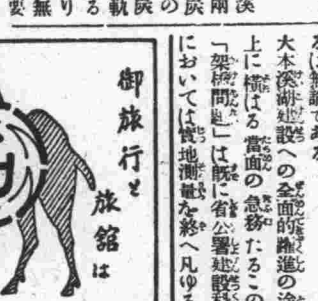 溪
兩
炭の
軌
る
り
無
要
大本溪湖建設への全面的躍進の途
上に橫はる當面の急務たるこの
「架橋問題」は既に省公署建設科
においては實地測量を終へ凡ゆる
御旅行と
旅館は